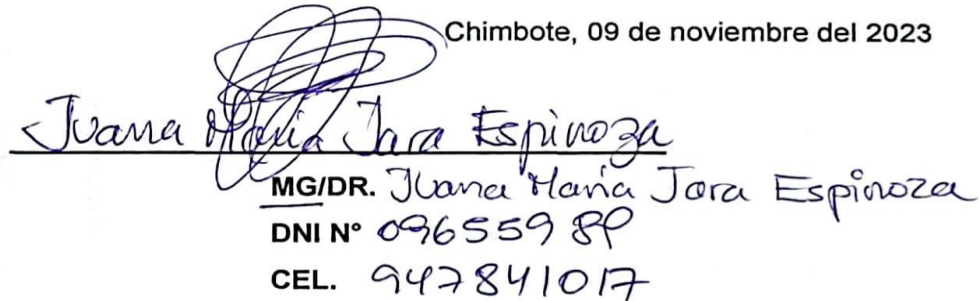 Chimbote, 09 de noviembre del 2023
Juana María Jara Espinoza
MG/DR. Juana María Jara Espinoza
DNI N°
CEL. 947841017